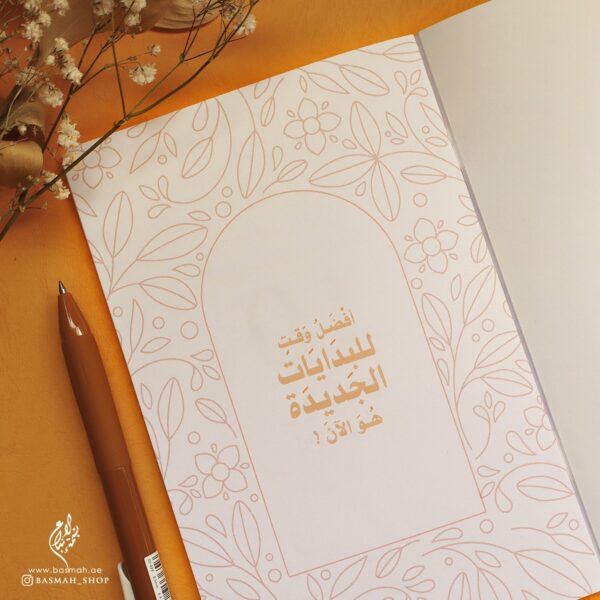 أفْضَلُ وَقت
للبدَايَات
الجَديدَة
هُوَ الآنَ !
www.basmah.ae
BASMAH_SHOP